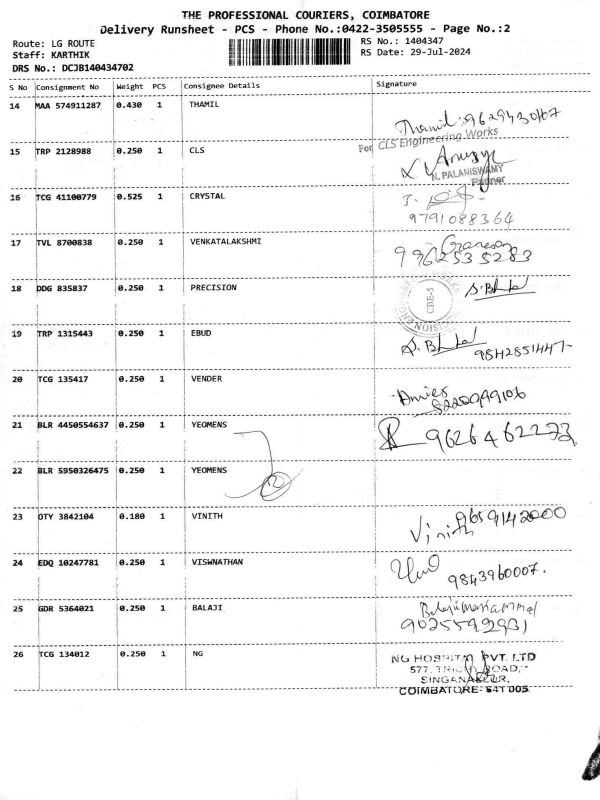 THE PROFESSIONAL COURIERS, COIMBATORE
Delivery Runsheet - PCS - Phone No.:0422-3505555 - Page No.:2
Route: LG ROUTE
Staff: KARTHIK
DRS No.: DCJB140434702
RS No.: 1404347
RS Date: 29-Jul-2024
S No Consignment No Weight PCS Consignee Details Signature
14 MAA 574911287 0.430 1 THAMIL
Thamil: 9629430167
For CLS Engineering Works
15 TRP 2128988 0.250 1 CLS
N. PALANISWAMY
Partner
16 TCG 41100779 0.525 1 CRYSTAL
9791088364
17 TVL 8700838 0.250 1 VENKATALAKSHMI
Ganesan
9962535283
18 DDG 835837 0.250 1 PRECISION
CBE-5
19 TRP 1315443 0.250 1 EBUD
9842851447
20 TCG 135417 0.250 1 VENDER
21 BLR 4450554637 0.250 1 YEOMENS
9626462273
22 BLR 5950326475 0.250 1 YEOMENS
23 OTY 3842104 0.180 1 VINITH
Vinith 9659142000
24 EDQ 10247781 0.250 1 VISWNATHAN
9843960007.
25 GDR 5364021 0.250 1 BALAJI
9025592931
26 TCG 134012 0.250 1 NG
NG HOSPITAL PVT. LTD
577, TRICHY ROAD,
SINGANALLUR,
COIMBATORE-641 005